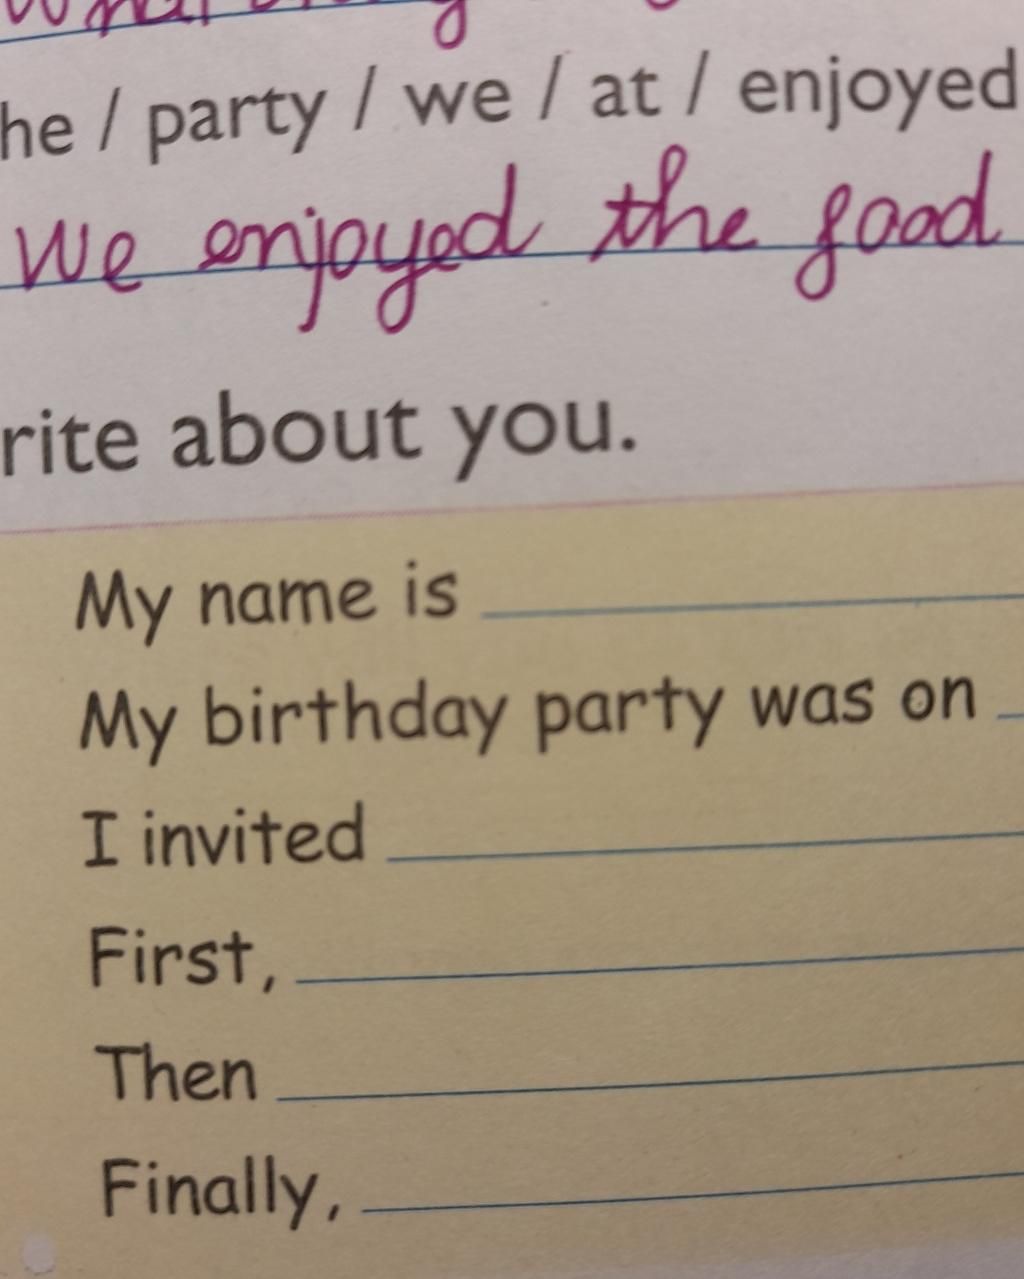 he / party / we / at / enjoyed
We enjoyed the food
rite about you.
My name is
My birthday party was on
I invited
First,
Then
Finally,